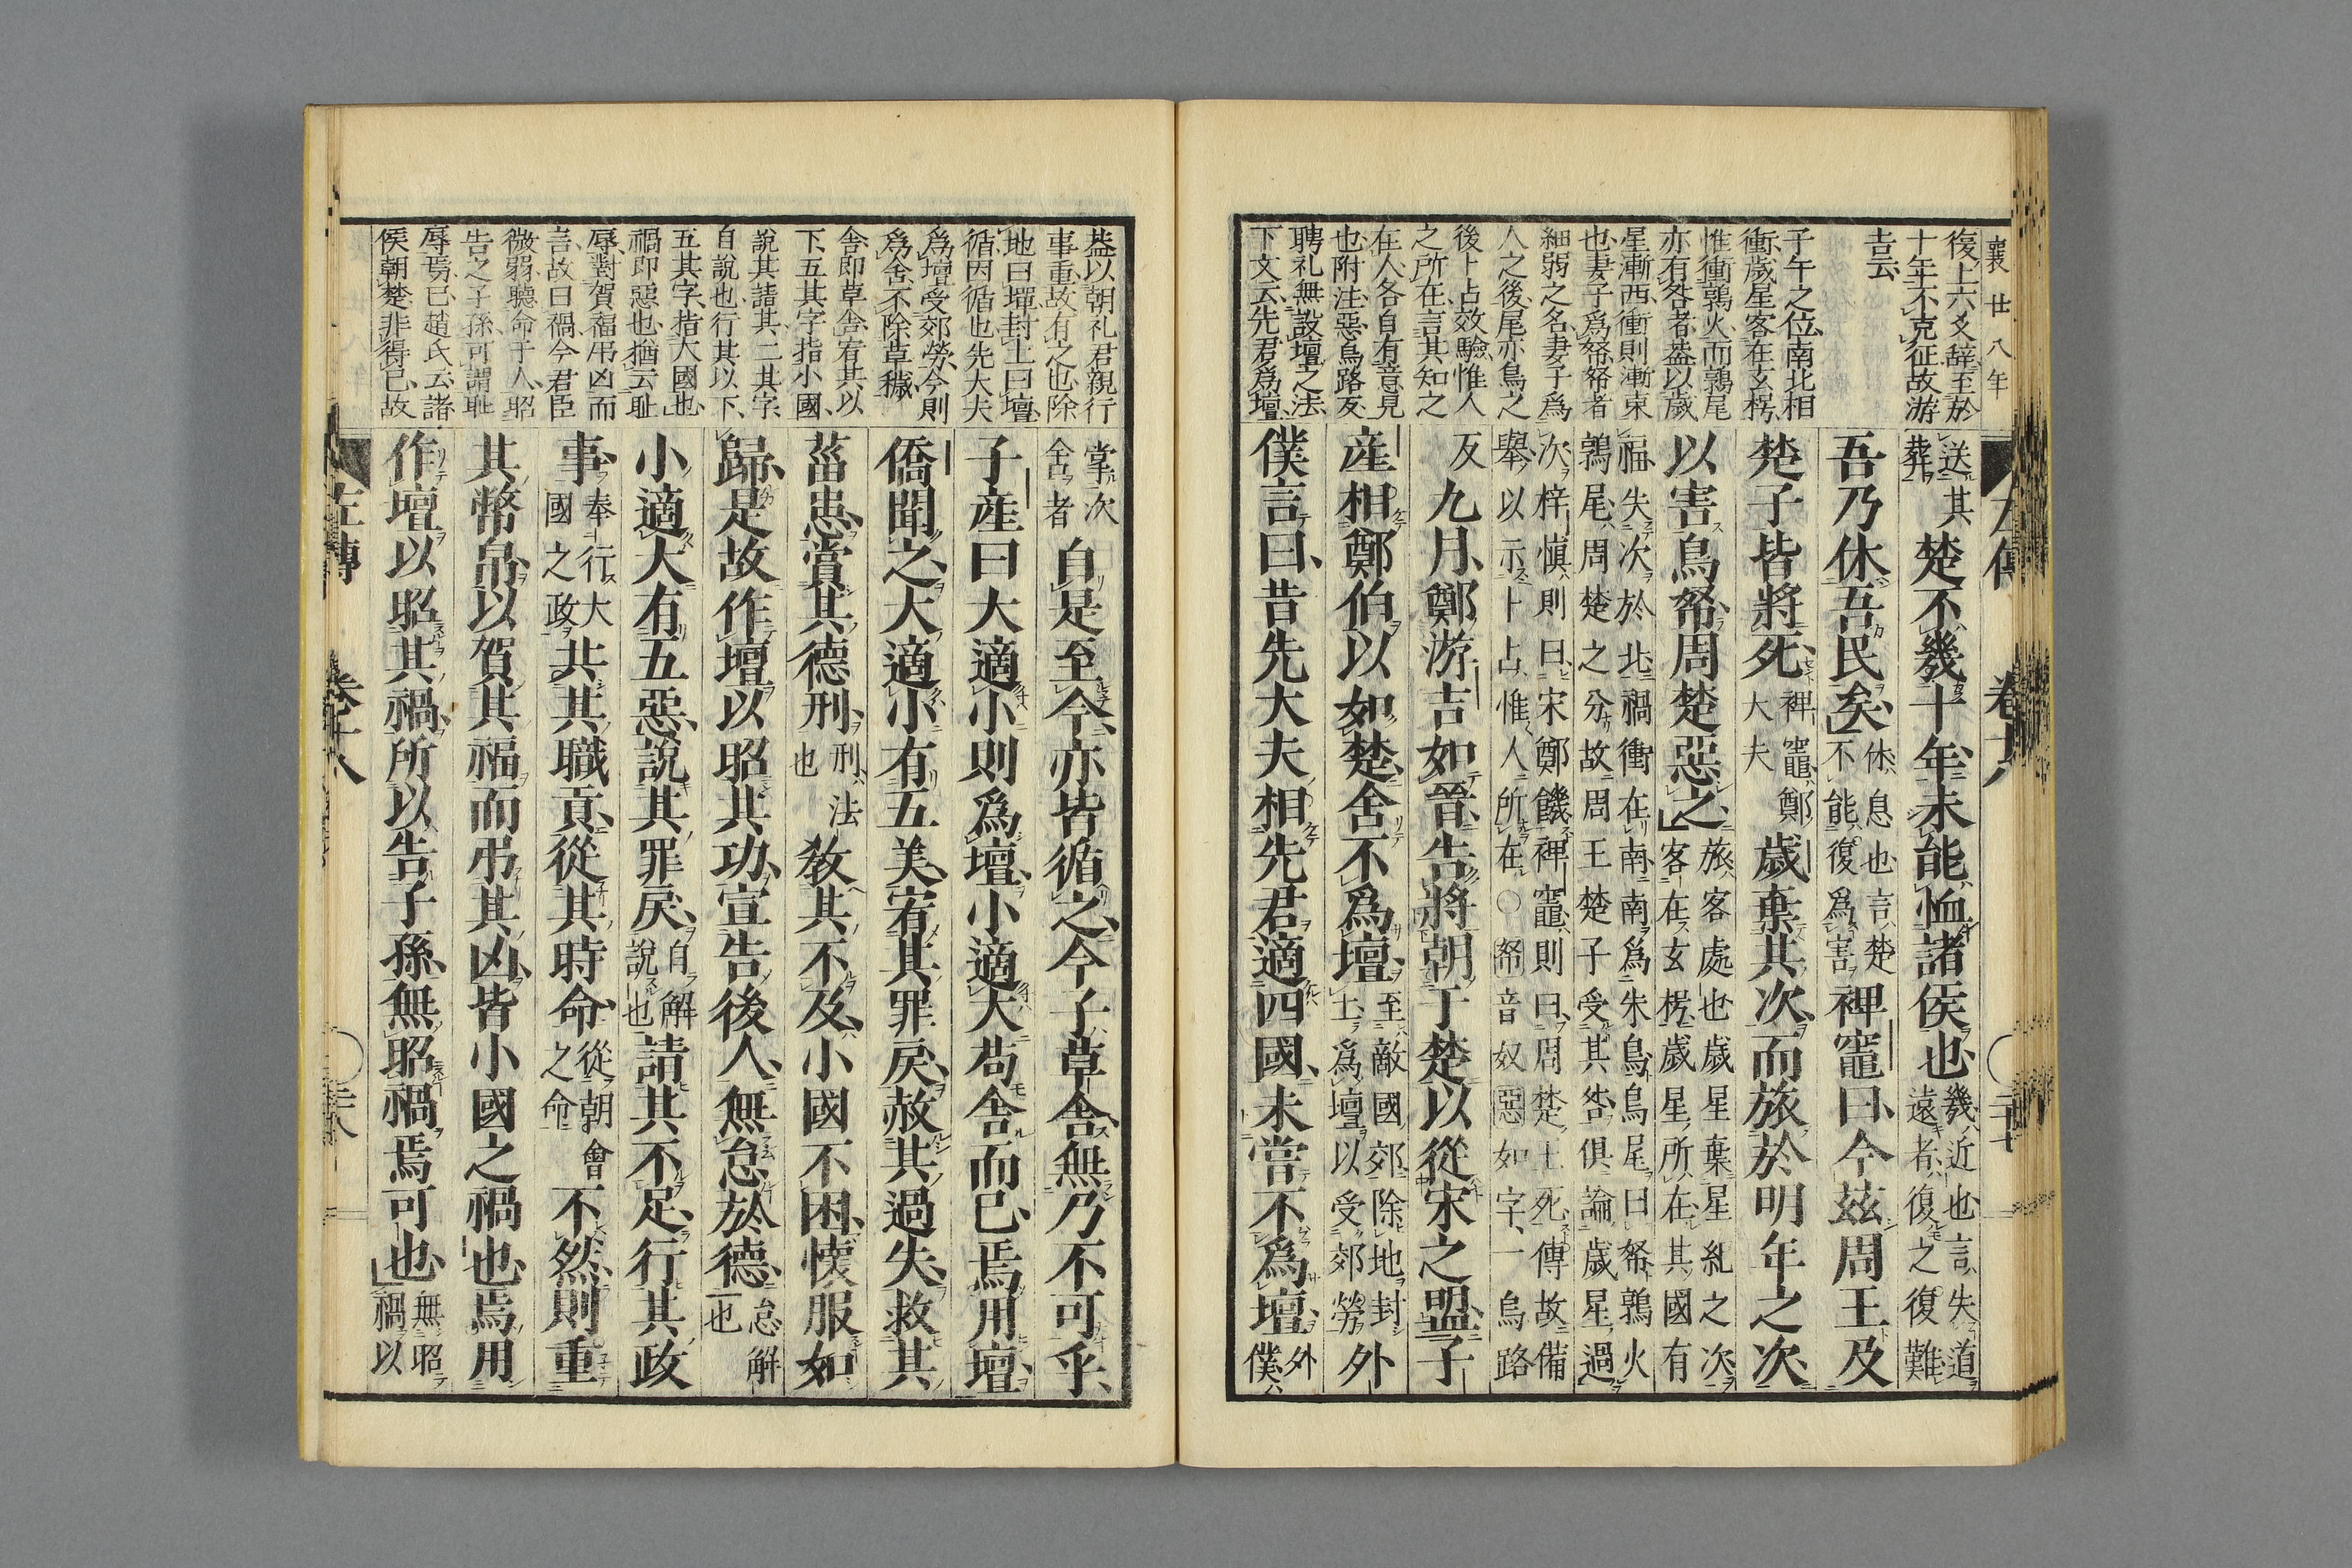 襄廿八年
復上六爻辭至於
十年不克征故游
吉云
子午之位南北相
衝歲星客在玄枵
惟衝鶉火而鶉尾
亦有咎者蓋以歲
星漸西衝則漸東
也妻子爲帑帑者
細弱之名妻子爲
人之後尾亦鳥之
後卜占效驗惟人
之所在言其知之
在人各自有意見
也附注惡烏路反
聘礼無設壇之法
下文云先君爲壇
送其
葬
楚不幾十年未能恤諸侯也
幾近也言失道
遠者復之復難
吾乃休吾民矣
休息也言楚
不能復爲害
裨竈曰今茲周王及
楚子皆將死
裨竈鄭
大夫
歲棄其次而旅於明年之次
以害鳥帑周楚惡之
旅客處也歲星棄星紀之次
客在玄枵歲星所在其國有
福失次於北禍衝在南南爲朱鳥鳥尾曰帑鶉火
鶉尾周楚之分故周王楚子受其咎俱論歲星過
次梓慎則曰宋鄭饑裨竈則曰周楚王死傳故備
舉以示卜占惟人所在○帑音奴惡如字一烏路
反
九月鄭游吉如晉告將朝于楚以從宋之盟子
產相鄭伯以如楚舍不爲壇
至敵國郊除地封
土爲壇以受郊勞
外
僕言曰昔先大夫相先君適四國未嘗不爲壇
外
僕
左傳 卷十八 ○二十七
蓋以朝礼君親行
事重故有之也除
地曰墠封土曰壇
循因循也先大夫
爲壇受郊勞今則
爲舍不除草穢
舍即草舍宥其以
下五其字指小國
說其請其二其字
自說也行其以下
五其字指大國也
禍即惡也猶云耻
辱對賀福吊凶而
言故曰禍今君臣
微弱聽命于人昭
告之子孫可謂耻
辱焉已趙氏云諸
侯朝楚非得已故
掌次
舍者
自是至今亦皆循之今子草舍無乃不可乎
子產曰大適小則爲壇小適大苟舍而已焉用壇
僑聞之大適小有五美宥其罪戾赦其過失救其
菑患賞其德刑
刑法
也
教其不及小國不困懷服如
歸是故作壇以昭其功宣告後人無怠於德
怠解
也
小適大有五惡說其罪戾
自解
說也
請其不足行其政
事
奉行大
國之政
共其職貢從其時命
從朝會
之命
不然則重
其幣帛以賀其福而弔其凶皆小國之禍也焉用
作壇以昭其禍所以告子孫無昭禍焉可也
無昭
禍以
左傳 卷十八 ○二十八